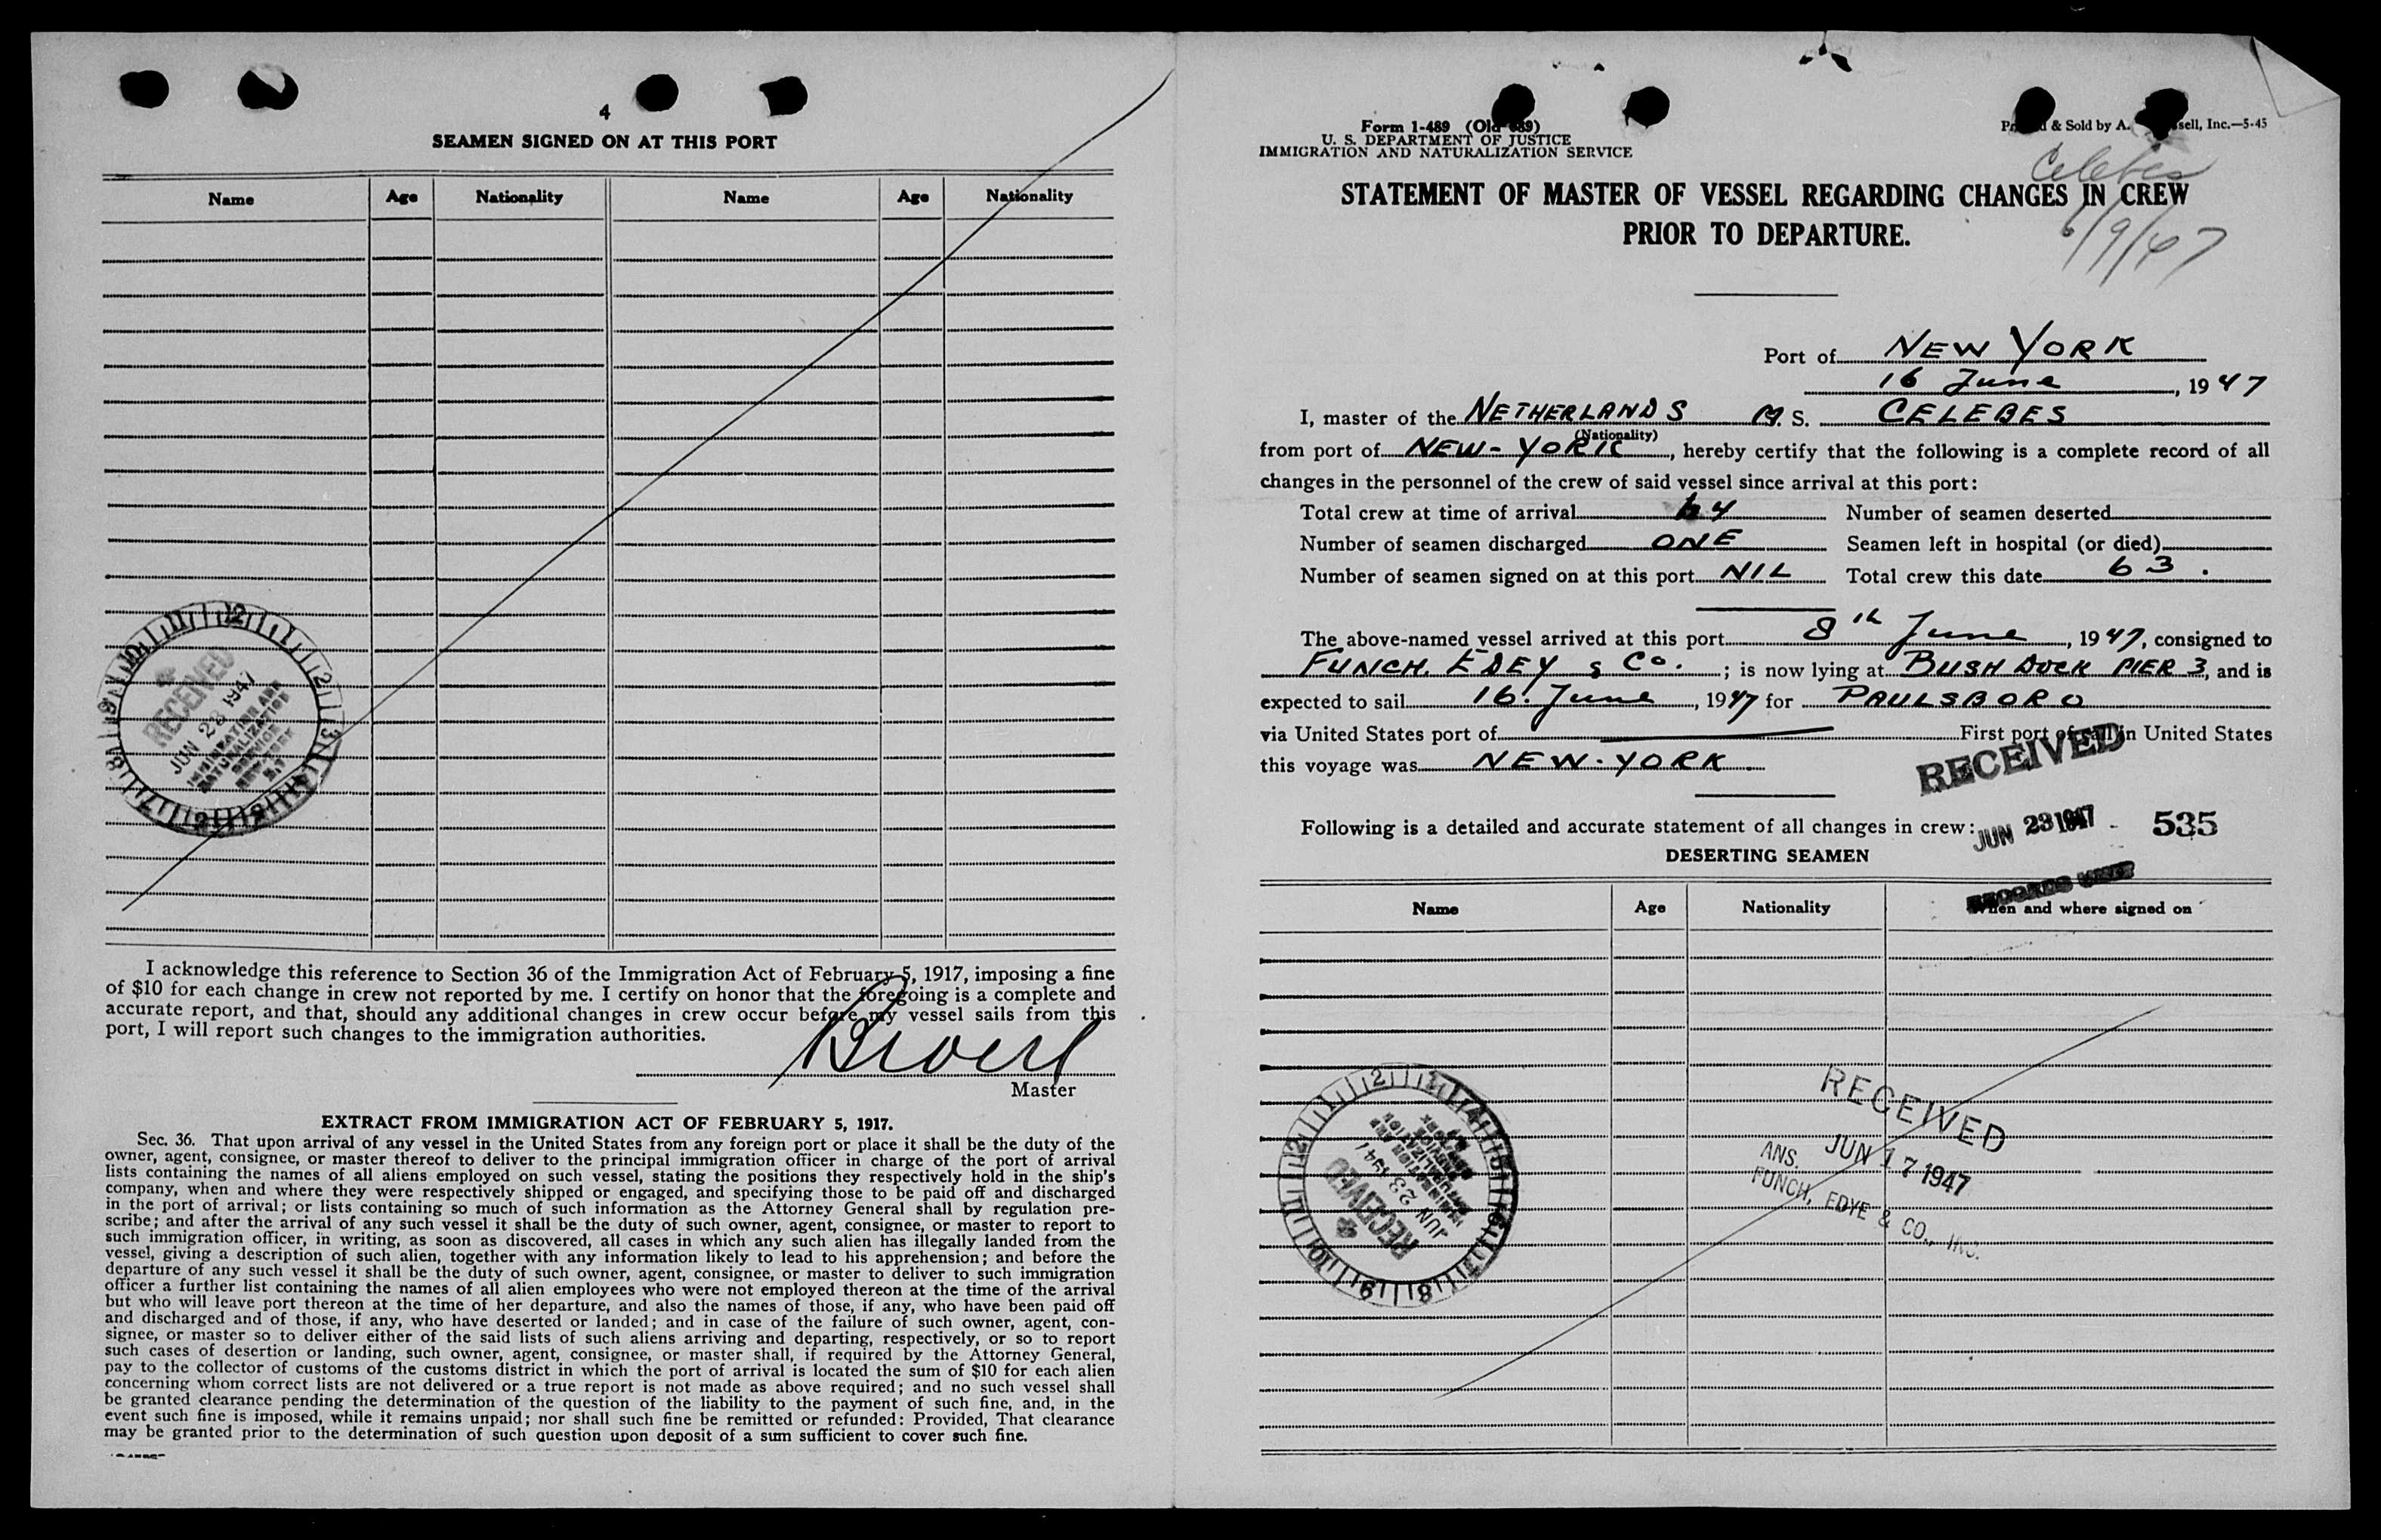 4
SEAMEN SIGNED ON AT THIS PORT
Name Age Nationality Name Age Nationality
12 1 2 3 4 5 6 7 8 9 10 11
RECEIVED
JUN 23 1947
IMMIGRATION AND
NATURALIZATION
SERVICE
NEW YORK
N.Y.
I acknowledge this reference to Section 36 of the Immigration Act of February 5, 1917, imposing a fine
of $10 for each change in crew not reported by me. I certify on honor that the foregoing is a complete and
accurate report, and that, should any additional changes in crew occur before my vessel sails from this
port, I will report such changes to the immigration authorities.
Master
EXTRACT FROM IMMIGRATION ACT OF FEBRUARY 5, 1917.
Sec. 36. That upon arrival of any vessel in the United States from any foreign port or place it shall be the duty of the
owner, agent, consignee, or master thereof to deliver to the principal immigration officer in charge of the port of arrival
lists containing the names of all aliens employed on such vessel, stating the positions they respectively hold in the ship's
company, when and where they were respectively shipped or engaged, and specifying those to be paid off and discharged
in the port of arrival; or lists containing so much of such information as the Attorney General shall by regulation pre-
scribe; and after the arrival of any such vessel it shall be the duty of such owner, agent, consignee, or master to report to
such immigration officer, in writing, as soon as discovered, all cases in which any such alien has illegally landed from the
vessel, giving a description of such alien, together with any information likely to lead to his apprehension; and before the
departure of any such vessel it shall be the duty of such owner, agent, consignee, or master to deliver to such immigration
officer a further list containing the names of all alien employees who were not employed thereon at the time of the arrival
but who will leave port thereon at the time of her departure, and also the names of those, if any, who have been paid off
and discharged and of those, if any, who have deserted or landed; and in case of the failure of such owner, agent, con-
signee, or master so to deliver either of the said lists of such aliens arriving and departing, respectively, or so to report
such cases of desertion or landing, such owner, agent, consignee, or master shall, if required by the Attorney General,
pay to the collector of customs of the customs district in which the port of arrival is located the sum of $10 for each alien
concerning whom correct lists are not delivered or a true report is not made as above required; and no such vessel shall
be granted clearance pending the determination of the question of the liability to the payment of such fine, and, in the
event such fine is imposed, while it remains unpaid; nor shall such fine be remitted or refunded: Provided, That clearance
may be granted prior to the determination of such question upon deposit of a sum sufficient to cover such fine.
Form 1-489 (Old 689)
U. S. DEPARTMENT OF JUSTICE
IMMIGRATION AND NATURALIZATION SERVICE
& Sold by A. Inc.—5-45
Celebes
STATEMENT OF MASTER OF VESSEL REGARDING CHANGES IN CREW
PRIOR TO DEPARTURE.
6/9/47
Port of NEW YORK
16 June, 1947
I, master of the NETHERLANDS M. S. CELEBES
(Nationality)
from port of NEW-YORK, hereby certify that the following is a complete record of all
changes in the personnel of the crew of said vessel since arrival at this port:
Total crew at time of arrival 64 Number of seamen deserted
Number of seamen discharged ONE Seamen left in hospital (or died)
Number of seamen signed on at this port NIL Total crew this date 63.
The above-named vessel arrived at this port 8th June, 1947, consigned to
FUNCH. EDEY & Co. ; is now lying at BUSH DOCK PIER 3, and is
expected to sail 16. June, 1947 for PAULSBORO
via United States port of — First port of call in United States
this voyage was NEW-YORK.
RECEIVED
Following is a detailed and accurate statement of all changes in crew: JUN 23 1947 - 535
DESERTING SEAMEN
RECORDS UNIT
Name Age Nationality When and where signed on
RECEIVED
JUN 17 1947
ANS.
FUNCH, EDYE & CO., INC.
12 1 2 3 4 5 6 7 8 9 10 11
RECEIVED
JUN 23 1947
IMMIGRATION AND
NATURALIZATION
SERVICE
NEW YORK
N.Y.